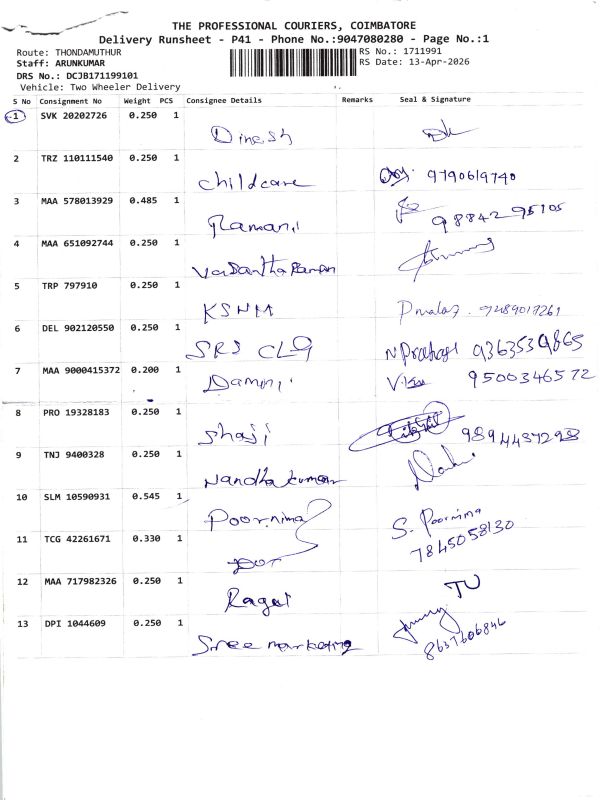 THE PROFESSIONAL COURIERS, COIMBATORE
Delivery Runsheet - P41 - Phone No.:9047080280 - Page No.:1
Route: THONDAMUTHUR
RS No.: 1711991
Staff: ARUNKUMAR
RS Date: 13-Apr-2026
DRS No.: DCJB171199101
Vehicle: Two Wheeler Delivery
S No Consignment No Weight PCS Consignee Details Remarks Seal & Signature
1 SVK 20202726 0.250 1
Dinesh
2 TRZ 110111540 0.250 1
Childcare 9790619740
3 MAA 578013929 0.485 1
Ramani 98842 95105
4 MAA 651092744 0.250 1
Vasantha Raman
5 TRP 797910 0.250 1
KSNM
6 DEL 902120550 0.250 1
SRS CLG 9363539865
7 MAA 9000415372 0.200 1
Damini 9500346572
8 PRO 19328183 0.250 1
Shaji 9894437298
9 TNJ 9400328 0.250 1
Nandha kumar
10 SLM 10590931 0.545 1
Poornima S. Poornima
7845058130
11 TCG 42261671 0.330 1
12 MAA 717982326 0.250 1
Ragul
13 DPI 1044609 0.250 1
Sree marketing 8637606846